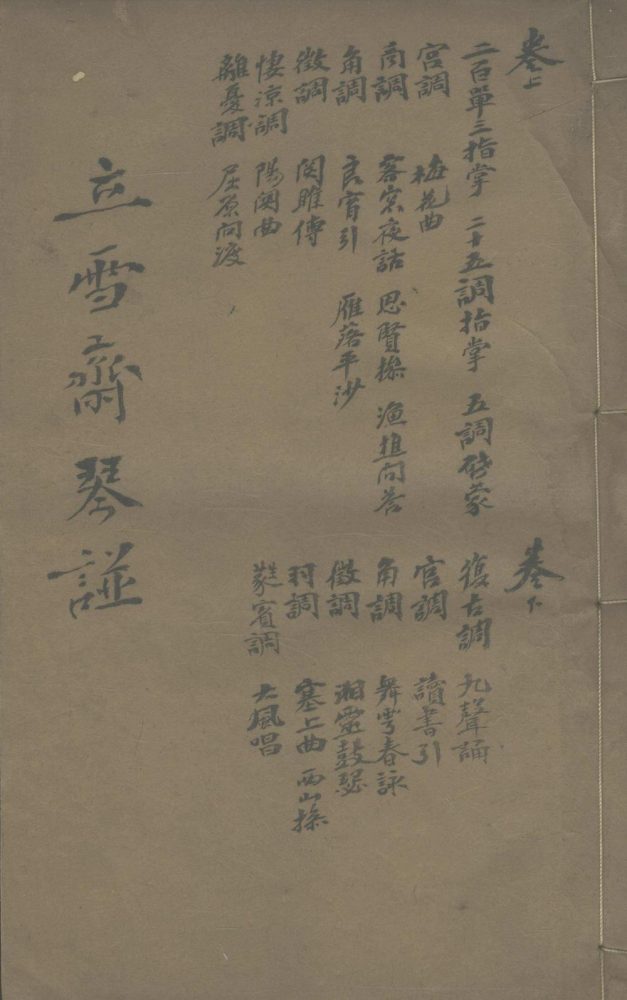 卷上
二百單三指掌 二十五調指掌 五調啓蒙
宮調 梅花曲
商調 客窓夜話 思賢操 漁樵问答
角調 良宵引 雁落平沙
徵調 関雎傳
悽涼調 陽関曲
離憂調 屈原问渡
卷下
復古調 九聲誦
宮調 讀書引
角調 舞雩春詠
徵調 湘靈鼓瑟
羽調 塞上曲 西山操
蕤賓調 大風唱
立雪齋琴譜